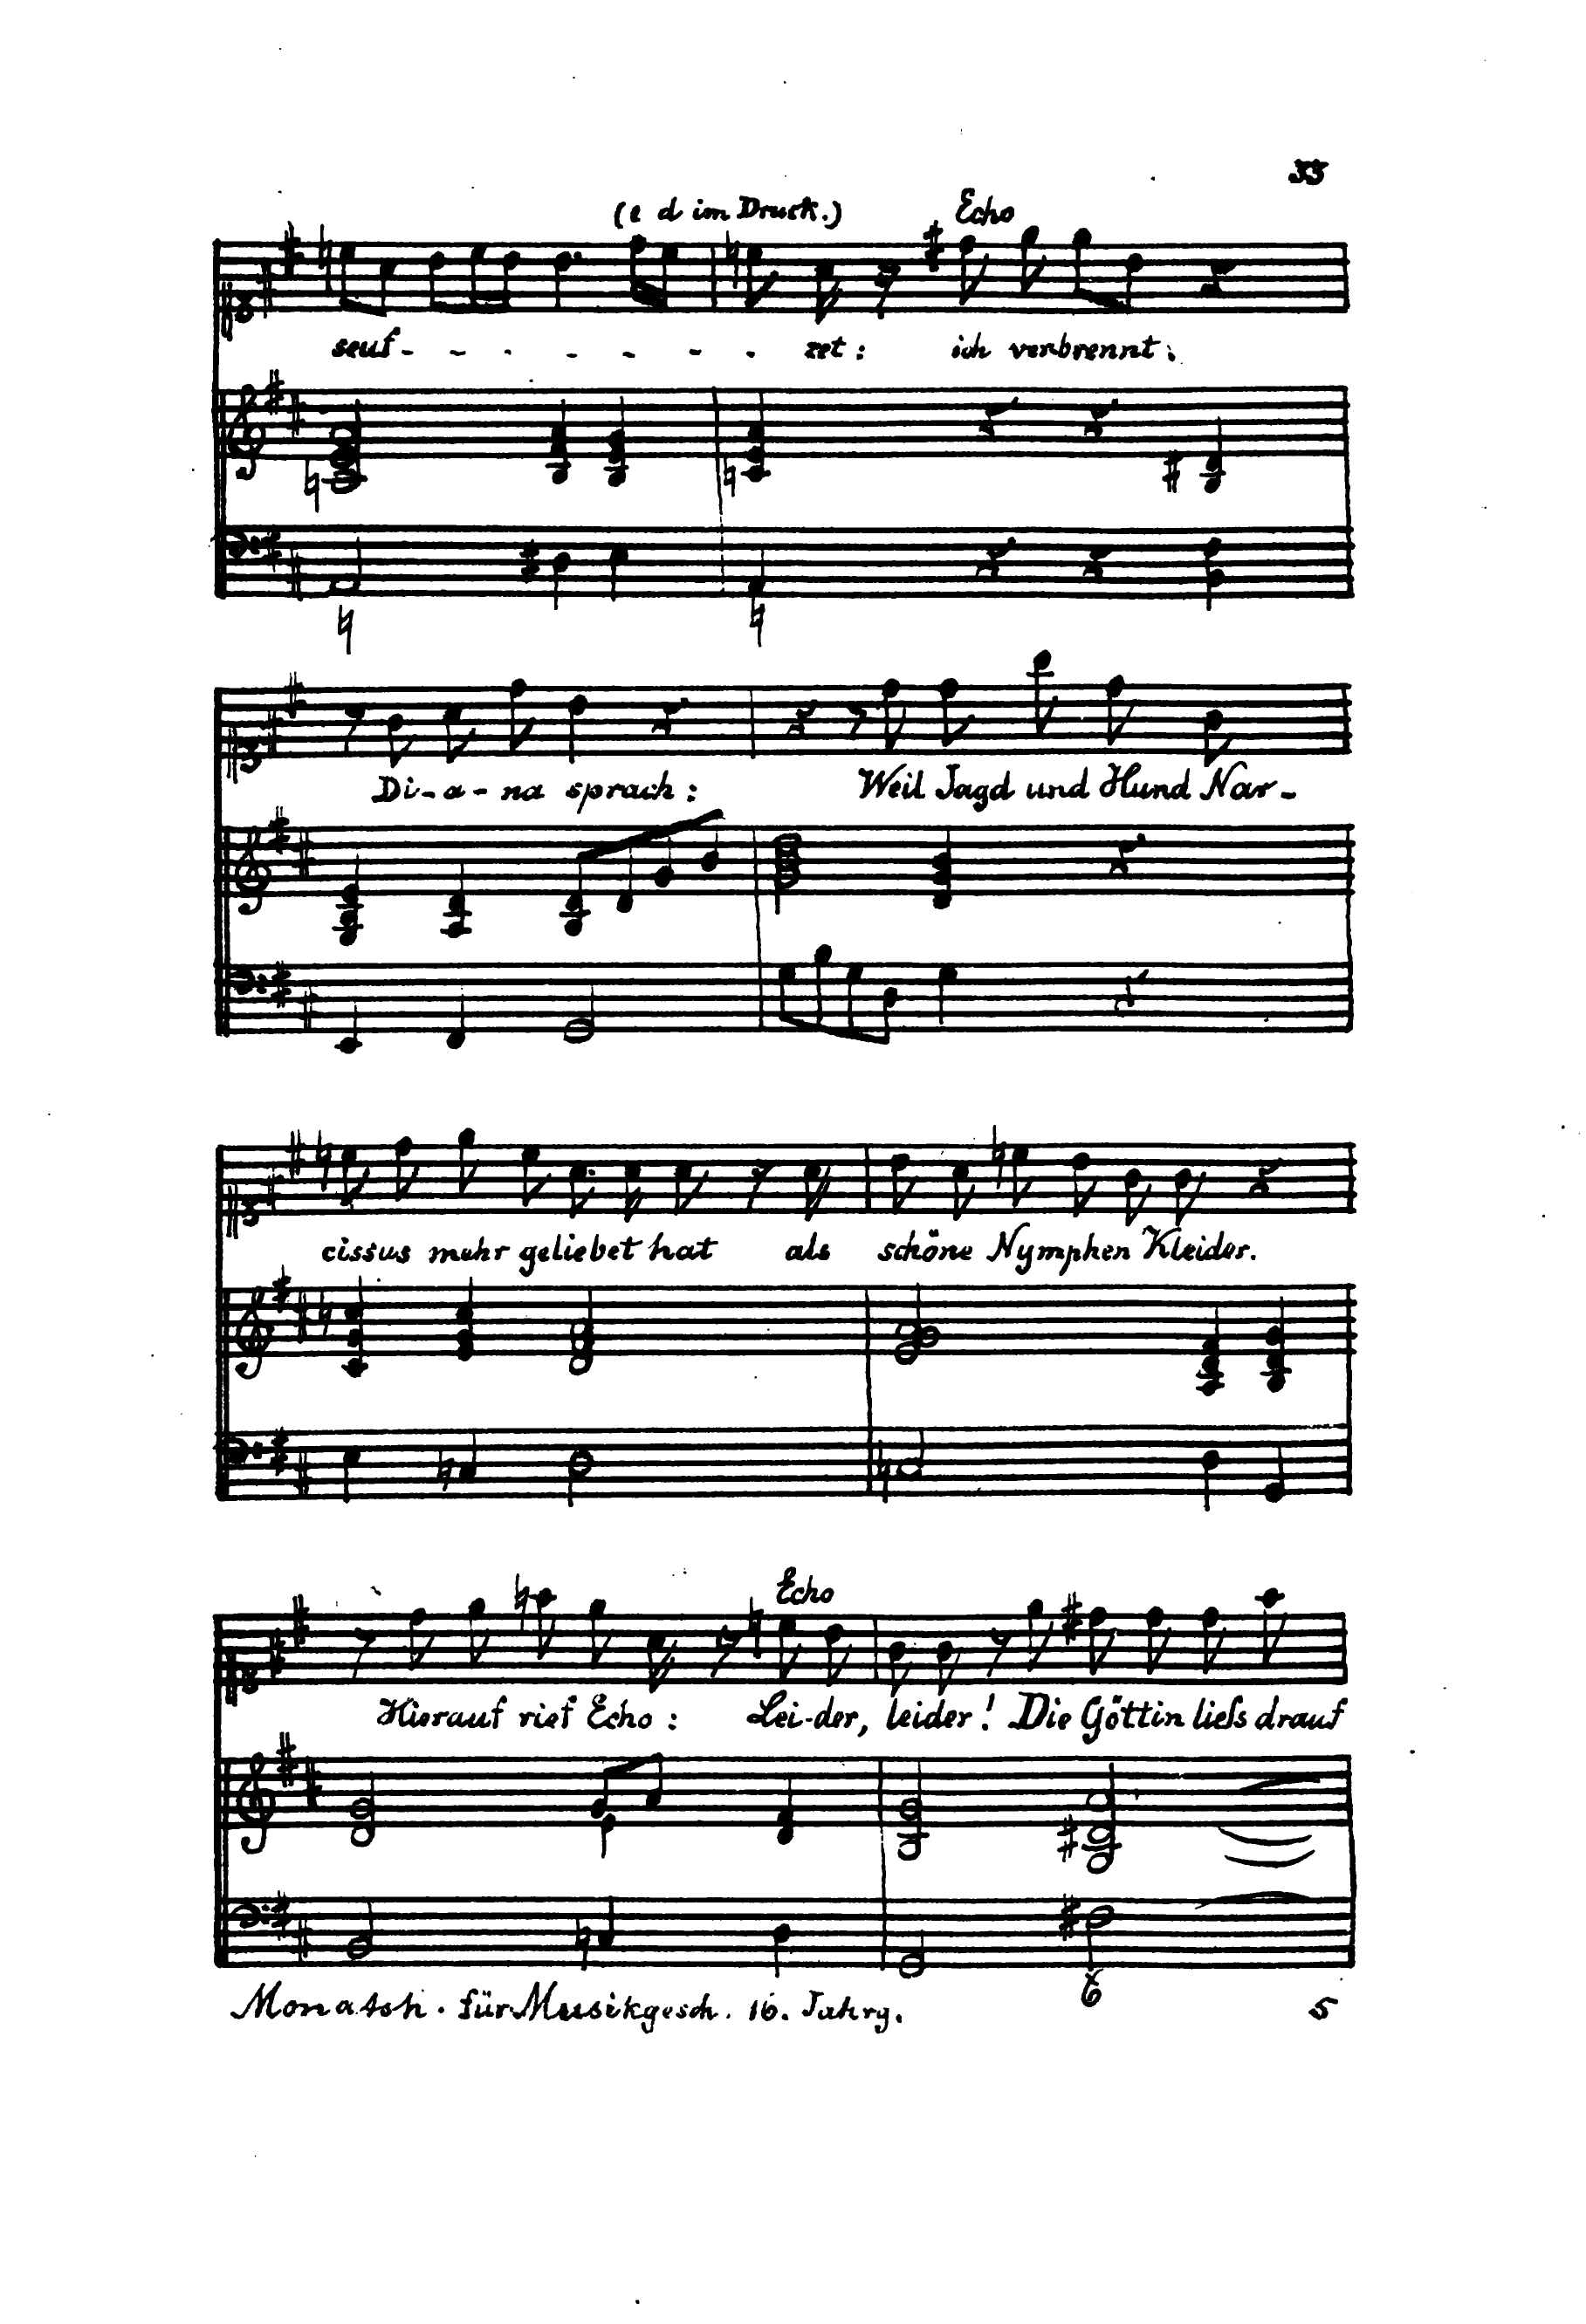 33
(e d im Druck.) Echo
seuf - - - - - - - zet: ich verbrennt:
Di-a-na sprach: Weil Jagd und Hund Nar-
cissus mehr geliebet hat als schöne Nymphen Kleider.
Echo
Hierauf rief Echo: Lei-der, leider! Die Göttin liess drauf
6
Monatsh. für Musikgesch. 16. Jahrg. 5